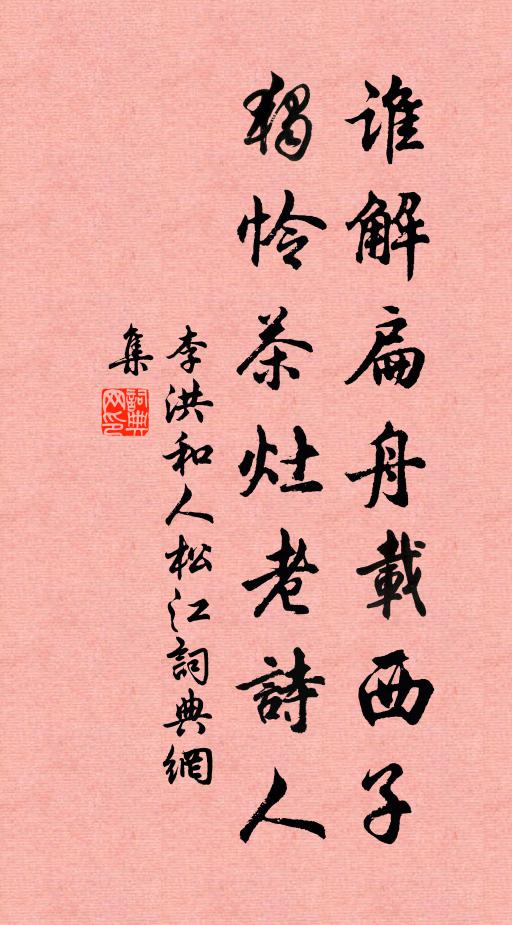 谁解扁舟載西子
獨怜茶灶老詩人
李洪和人松江詞典網
集
詞典网印